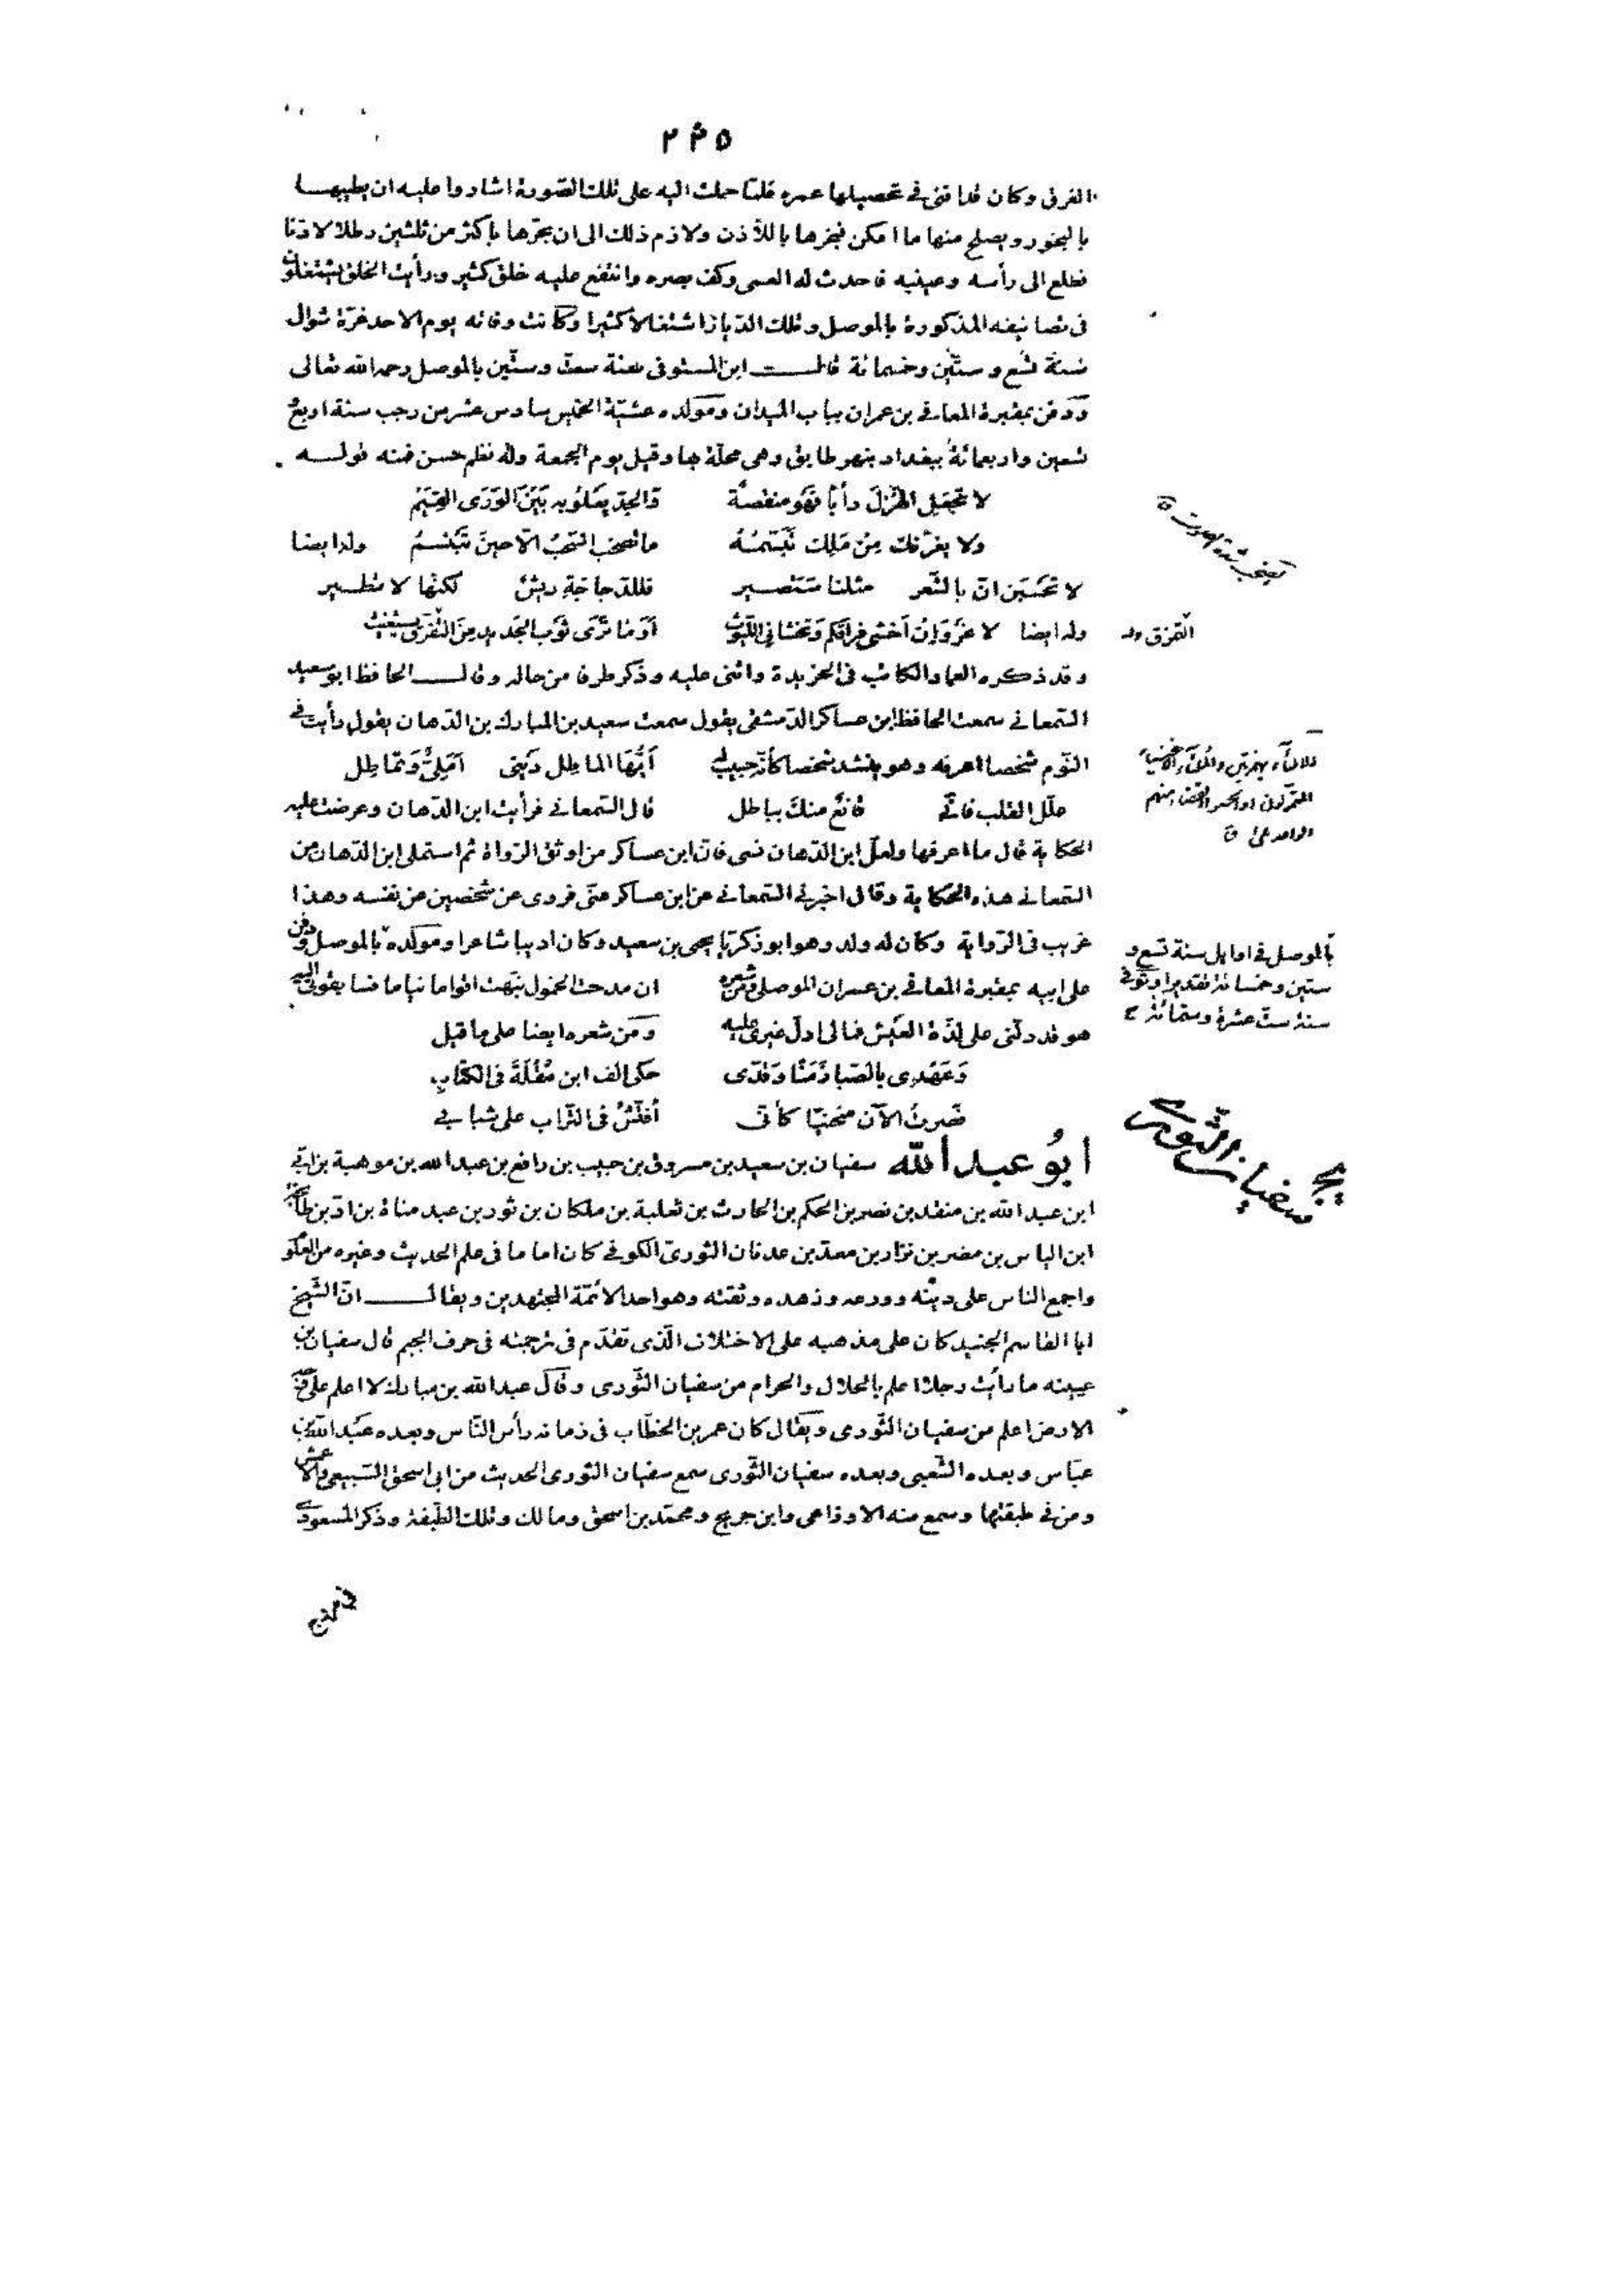 ٢٣٥
الغرق وكان قد افنى فى تحصيلها عمره فلمّا حملت اليه على تلك الصّورة اشاروا عليه ان يطيبها
بالبخور ويصلح منها ما امكن فبخرها باللاذن ولازم ذلك الى ان بخّرها باكثر من ثلثين رطلا لاذنا
فطلع الى رأسه وعينيه فاحدث له العمى وكف بصره وانتفع عليه خلق كثير ورأيت الخلق يشتغلون
فى تصانيفه المذكورة بالموصل وتلك الدّيار اشتغالا كثيرا وكانت وفاته يوم الاحد غرّة شوال
سنة تسع وستّين وخمسمائة قالـــت ابن المستوفى سنة ستّ وستّين بالموصل رحمه الله تعالى
ودفن بمقبرة المعافى بن عمران بباب الميدان ومولده عشيّة الخميس سادس عشر من رجب سنة اربع
تسعين واربعمائة ببغداد بنهر طابق وهى محلّة بها وقيل يوم الجمعة وله نظم حسن فمنه قولـــه
لا تجعل الهزل دأبا فهو منقصة والجدّ يعلو به بين الورى القيم
ولا يغرّنك من ملك تبسّمه ما تصخب السّحب الّا حين تبتسم وله ايضا
لا تحسبن انّ بالشّعر مثلنا ستصير فللدّجاجة ريش لكنّها لا تطير
وله ايضا لا غرو ان اخشى فراقكم وتخشانى اللّيوث أوما ترى ثوب الجديد من التفرّق يستغيث
التمزق وله
وقد ذكره العماد الكاتب فى الخريدة واثنى عليه وذكر طرفا من حاله وقالــــ الحافظ ابو سعيد
السّمعانى سمعت الحافظ ابن عساكر الدّمشقى يقول سمعت سعيد بن المبارك بن الدّهان يقول رأيت فى
النّوم شخصا اعرفه وهو ينشد شخصا كأنّه حبيب له أيّها الماطل دينى أملىّ وتماطل
علّل القلب فانّى قانع منك بباطل قال السّمعانى فرأيت ابن الدّهان وعرضت عليه
الحكاية فقال ما اعرفها ولعلّ ابن الدّهان نسى فانّ ابن عساكر من اوثق الرّواة ثم استملى ابن الدّهان من
السّمعانى هذه الحكاية وقال اخبرنى السّمعانى عن ابن عساكر عنّى فروى عن شخصين عن نفسه وهذا
غريب فى الرّواية وكان له ولد وهو ابو زكريّا يحيى بن سعيد وكان اديبا شاعرا ومولده بالموصل ودفن
بالموصل فى اوايل سنة تسع و
ستين وخمسمائة تقديرا وتوفى
سنة ستّ عشرة وستّمائة
على ابيه بمقبرة المعافى بن عمران الموصلى ومن شعره ان مدحت الخمول نبّهت اقواما نياما فسابقونى اليه
هو قد دلّنى على لذّة العيش فمالى ادلّ غيرى عليه ومن شعره ايضا على ما قيل
وعهدى بالصّبا زمنا وقدّى حكى الف ابن مقلة فى الكتاب
فصرت الآن منحنيا كأنّى افتّش فى التّراب على شبابى
سفيان الثّورى
أبو عبد الله سفيان بن سعيد بن مسروق بن حبيب بن رافع بن عبد الله بن موهبة بن ابىّ
ابن عبد الله بن منقذ بن نصر بن الحكم بن الحارث بن ثعلبة بن ملكان بن ثور بن عبد مناة بن ادّ بن طابخة
ابن الياس بن مضر بن نزار بن معدّ بن عدنان الثورىّ الكوفى كان اماما فى علم الحديث وغيره من العلوم
واجمع الناس على دينه وورعه وزهده وثقته وهو احد الائمّة المجتهدين ويقالــــ انّ الشّيخ
ابا القاسم الجنيد كان على مذهبه على الاختلاف الّذى تقدّم فى ترجمته فى حرف الجيم قال سفيان بن
عيينه ما رأيت رجلا اعلم بالحلال والحرام من سفيان الثّورى وقال عبد الله بن مبارك لا اعلم على وجه
الارض اعلم من سفيان الثّورى ويقال كان عمر بن الخطّاب فى زمانه رأس النّاس وبعده عبد الله بن
عبّاس وبعده الشّعبى وبعده سفيان الثّورى سمع سفيان الثورى الحديث من ابى اسحق السّبيعى والاعمش
ومن فى طبقتهما وسمع منه الاوزاعى وابن جريج ومحمّد بن اسحق ومالك وتلك الطّبقة وذكر المسعودى